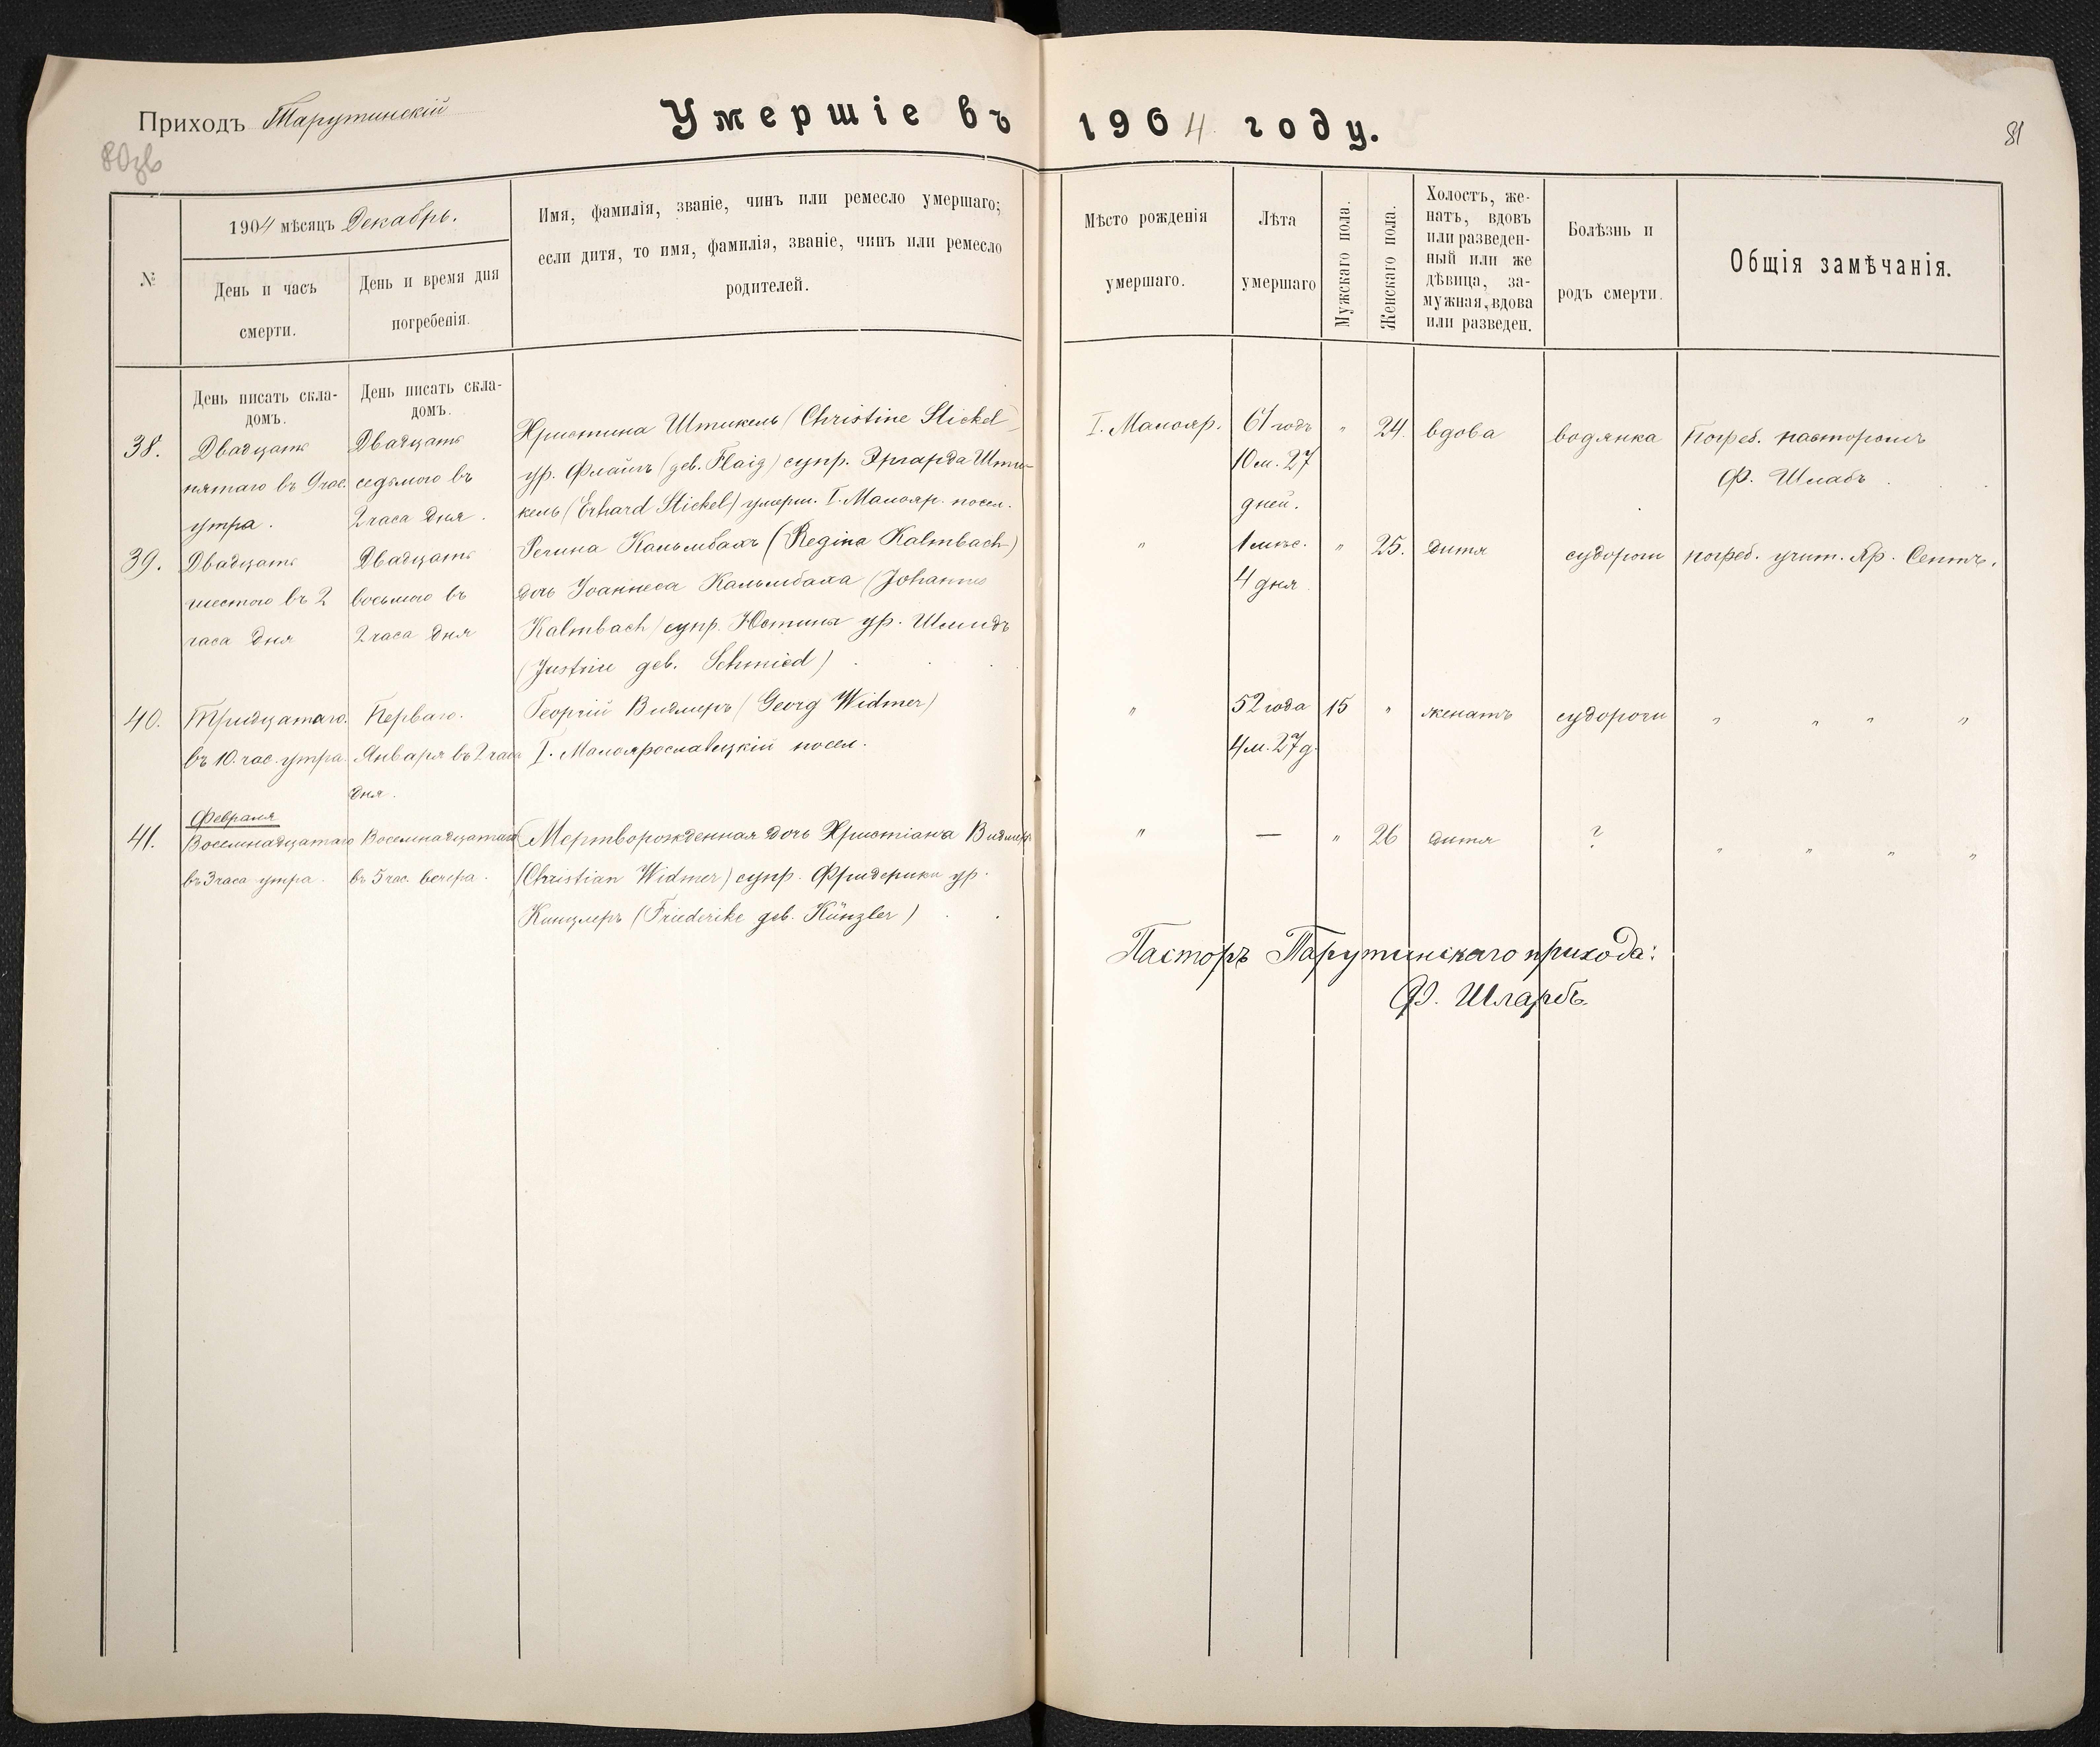 Приходъ Тарутинскій
Умершіе въ 1904 году.
80зв
81
№
1904 мѣсяцъ Декабрь.
День и часъ
смерти.
День и время дня
погребенія.
Имя, фамилія, званіе, чинъ или ремесло умершаго;
если дитя, то имя, фамилія, званіе, чинъ или ремесло
родителей.
Мѣсто рожденія
умершаго.
Лѣта
умершаго
Мужскаго пола.
Женскаго пола.
Холостъ, же-
натъ, вдовъ
или разведен-
ный или же
дѣвица, за-
мужная, вдова
или разведен.
Болѣзнь и
родъ смерти.
Общія замѣчанія.
День писать скла-
домъ.
День писать скла-
домъ.
38.
Двадцать
пятаго въ 9 час.
утра.
Двадцать
седьмого въ
2 часа дня.
Христина Штикель (Christine Stickel)
ур. Флайгъ (geb. Flaig) супр. Эргарда Шти-
кель (Erhard Stickel) умерш. I. Малояр. посел.
I. Малояр.
61 годъ
10 м. 27
дней.
" 24. вдова
водянка
Погреб. пасторомъ
Ф. Шлабъ
39.
Двадцать
шестого въ 2
часа дня
Двадцать
восьмого въ
2 часа дня
Регина Кальмбахъ (Regina Kalmbach)
дочь Іоаннеса Кальмбаха (Johannes
Kalmbach) супр. Юстины ур. Шмидъ
(Justine geb. Schmied)
"
1 мѣс.
4 дня
" 25. дитя
судороги
погреб. учит. Яр.
40.
Тридцатаго
въ 10. час. утра.
Перваго.
Января въ 2 часа
дня.
Георгій Видмеръ (Georg Widmer)
I. Малоярославецкій посел.
"
52 года
4 м. 27 д.
15 " женатъ
судороги
" " " "
41.
Февраля
Восемнадцатаго
въ 3 часа утра.
Восемнадцатаго
въ 5 час. вечера.
Мертворожденная дочь Христіана Видмеръ
(Christian Widmer) супр. Фридерики ур.
Кинцлеръ (Friederike geb. Künzler)
"
—
" 26 дитя
?
" " " "
Пасторъ Тарутинскаго прихода:
Ф. Шларбъ